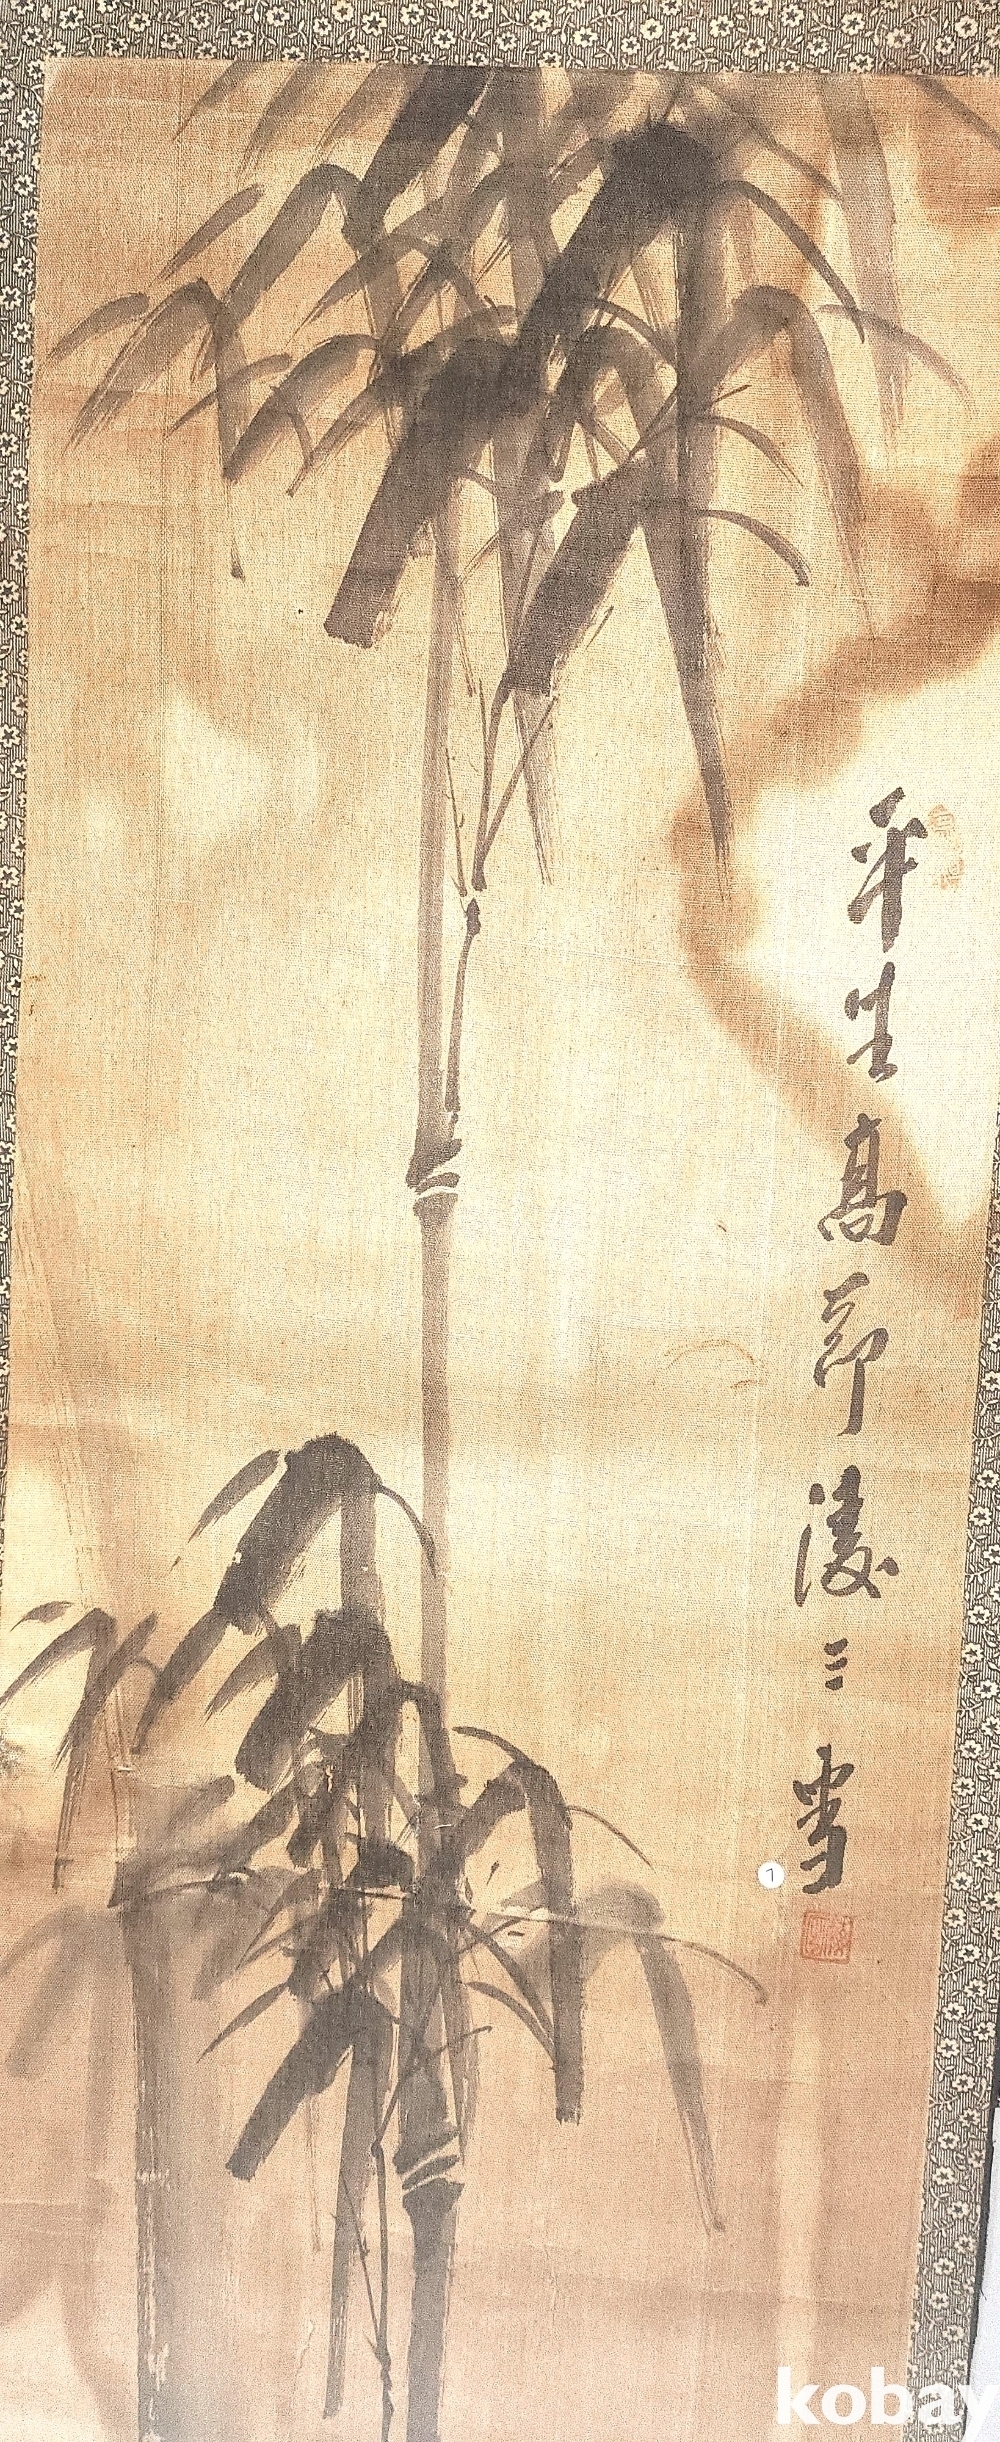 平生高節凌三雪
1
kobay